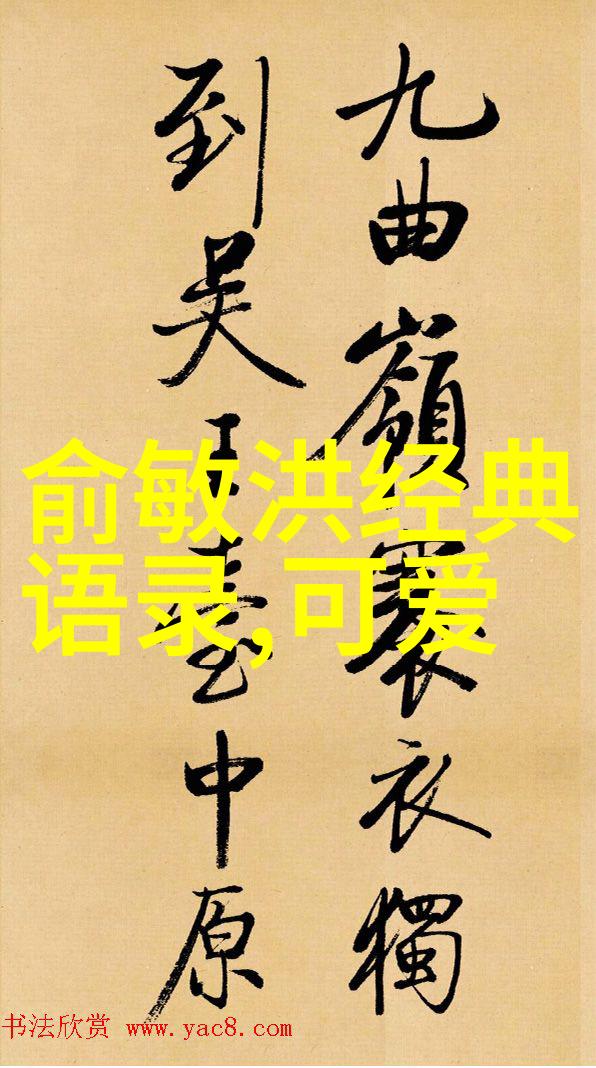 九曲嶺褰衣獨
到吳王臺中原
俞敏洪经典
语录,可爱
书法欣赏 www.yac8.com